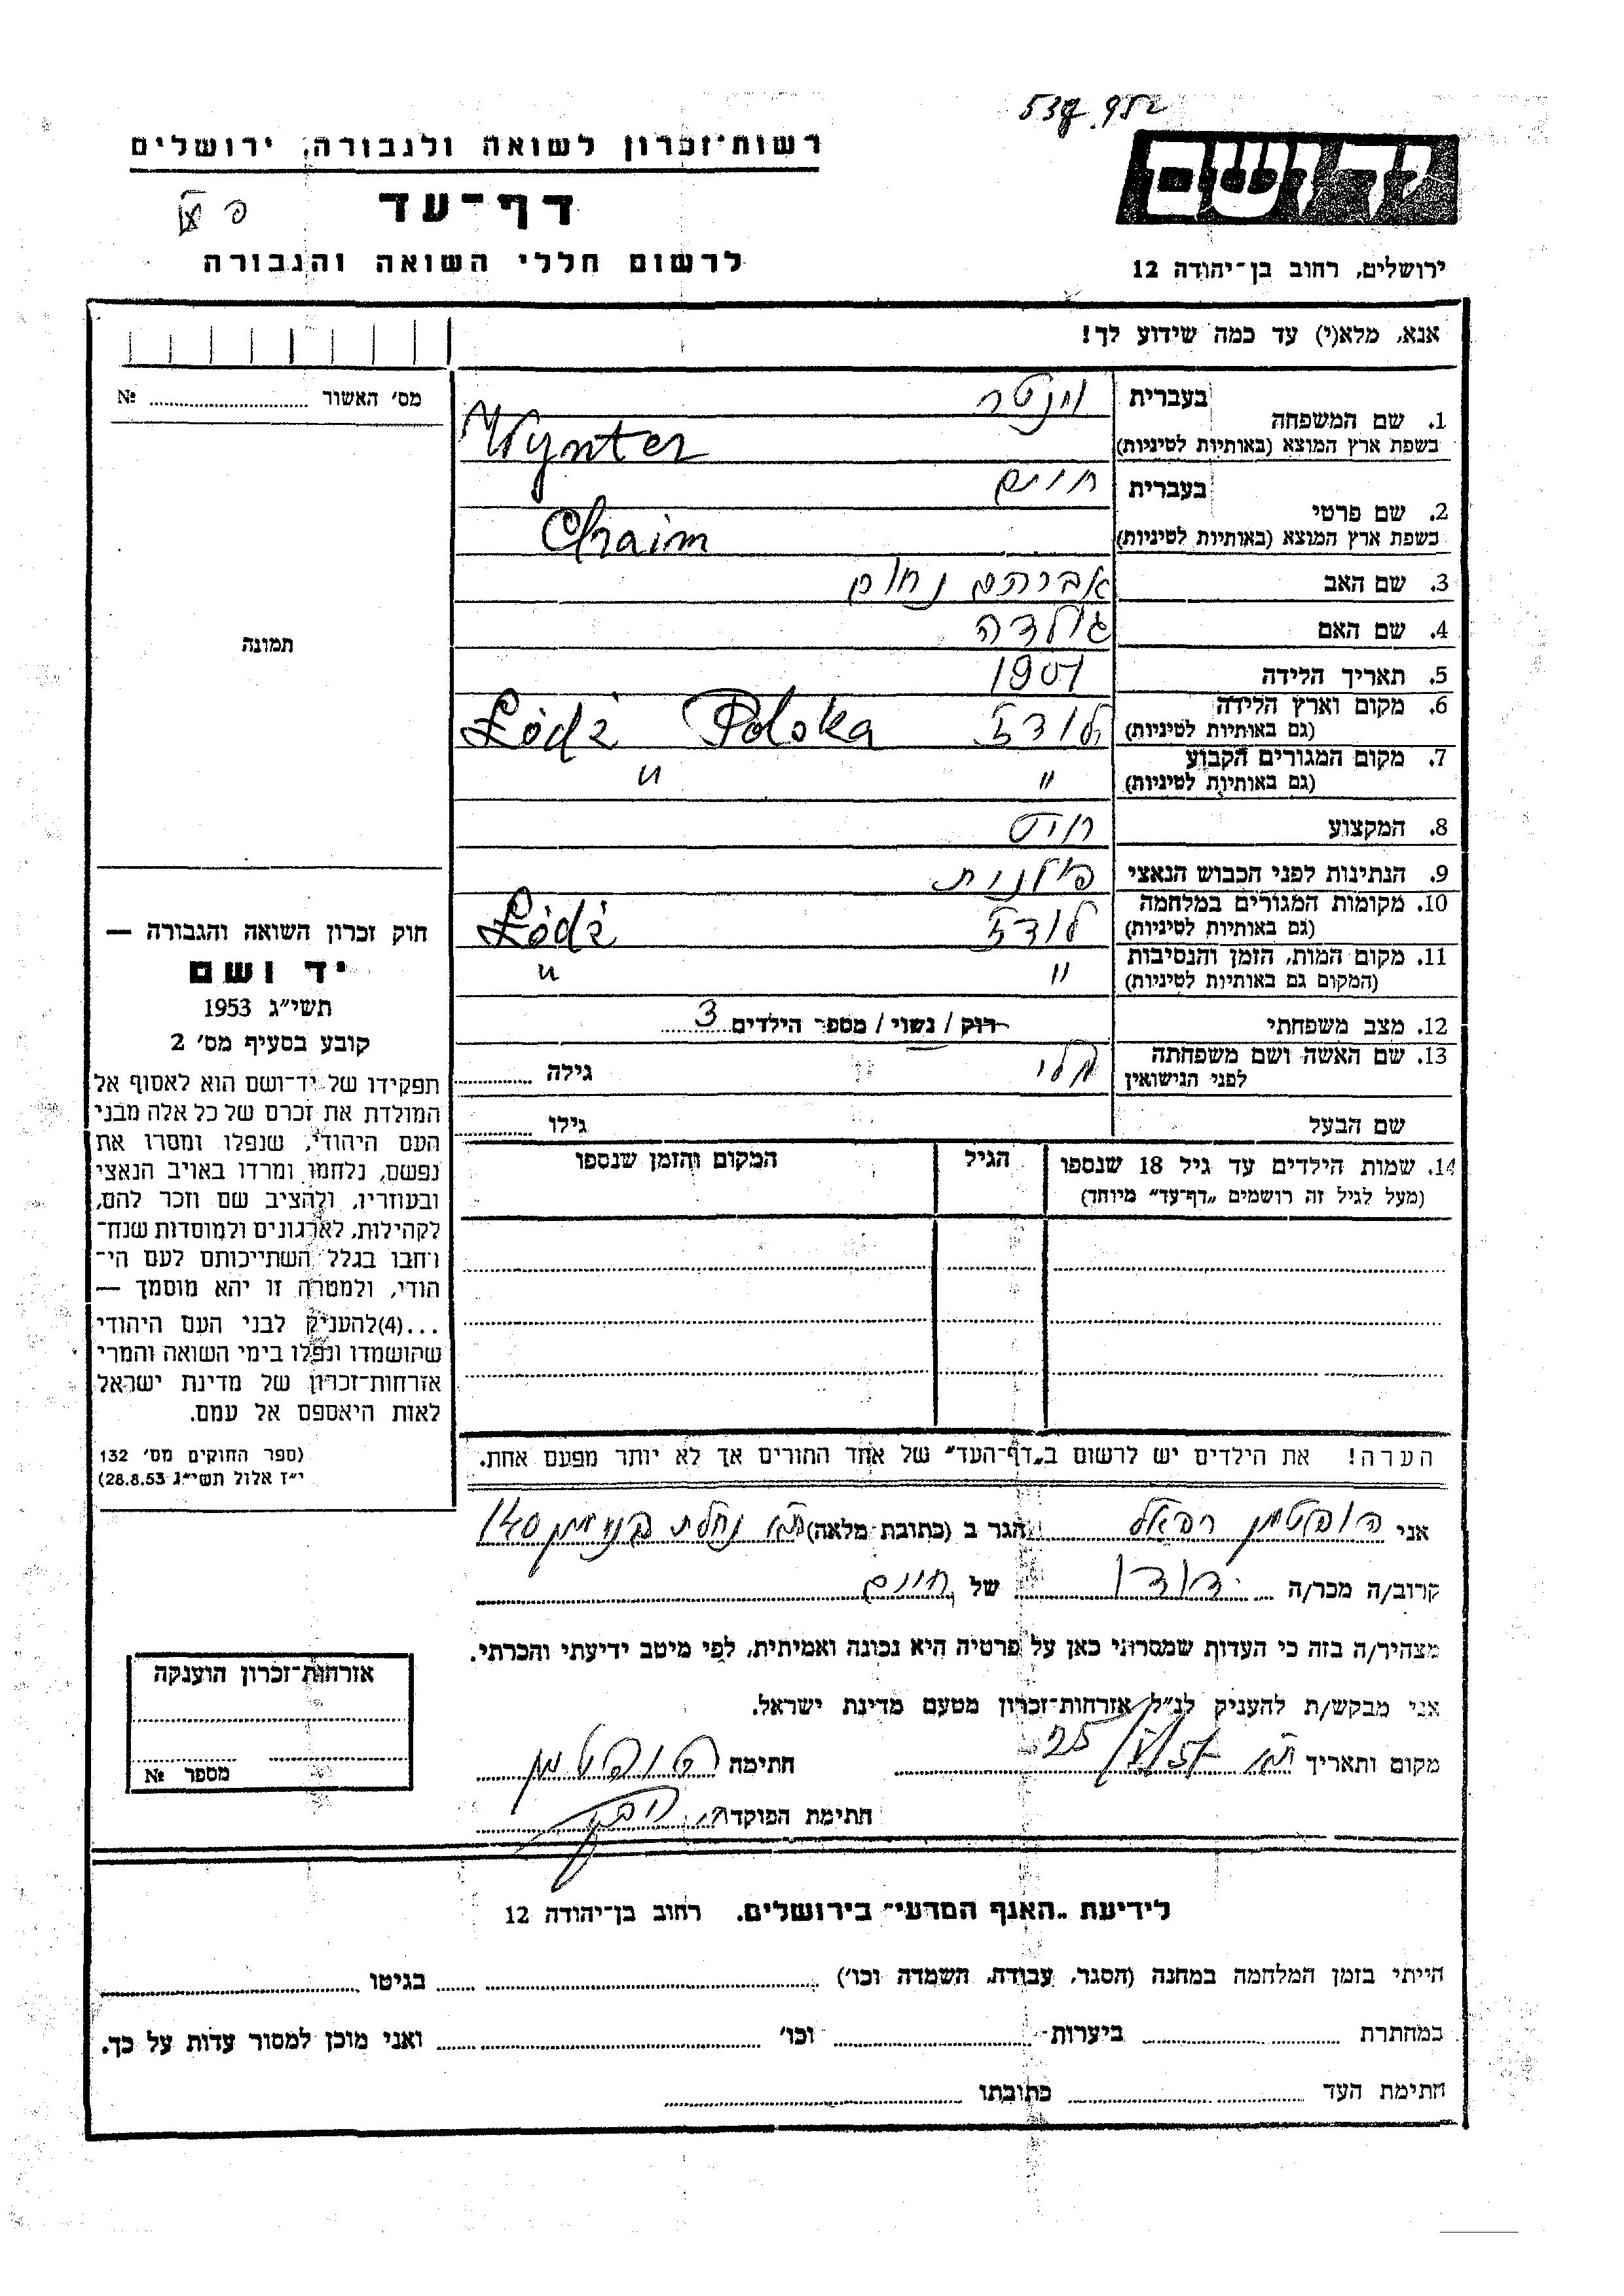 537.952
רשות־זכרון לשואה ולגבורה, ירושלים
יד ושם
דף־עד
לרשום חללי השואה והגבורה
ירושלים, רחוב בן־יהודה 12
אנא, מלא(י) עד כמה שידוע לך!
מס׳ האשור № 
תמונה
1. שם המשפחה בעברית וינטר
בשפת ארץ המוצא (באותיות לטיניות) Wynter
2. שם פרטי בעברית חיים
בשפת ארץ המוצא (באותיות לטיניות) Chaim
3. שם האב אברהם נחום
4. שם האם גולדה
5. תאריך הלידה 1901
6. מקום וארץ הלידה לודז Łódź Polska
(גם באותיות לטיניות)
7. מקום המגורים הקבוע " "
(גם באותיות לטיניות)
8. המקצוע חיט
9. הנתינות לפני הכבוש הנאצי פולנית
10. מקומות המגורים במלחמה לודז Łódź
(גם באותיות לטיניות)
11. מקום המות, הזמן והנסיבות " "
(המקום גם באותיות לטיניות)
12. מצב משפחתי רוק / נשוי / מספר הילדים 3
13. שם האשה ושם משפחתה מלי גילה
לפני הנישואין
שם הבעל גילו
14. שמות הילדים עד גיל 18 שנספו הגיל המקום והזמן שנספו
(מעל לגיל זה רושמים „דף־עד״ מיוחד)
הערה! את הילדים יש לרשום ב„דף־העד״ של אחד ההורים אך לא יותר מפעם אחת.
חוק זכרון השואה והגבורה —
יד ושם
תשי״ג 1953
קובע בסעיף מס׳ 2
תפקידו של יד־ושם הוא לאסוף אל
המולדת את זכרם של כל אלה מבני
העם היהודי, שנפלו ומסרו את
נפשם, נלחמו ומרדו באויב הנאצי
ובעוזריו, ולהציב שם וזכר להם,
לקהילות, לארגונים ולמוסדות שנח־
רחבו בגלל השתייכותם לעם הי־
הודי, ולמטרה זו יהא מוסמך —
...(4)להעניק לבני העם היהודי
שהושמדו ונפלו בימי השואה והמרי
אזרחות־זכרון של מדינת ישראל
לאות היאספם אל עמם.
(ספר החוקים מס׳ 132
י״ז אלול תשי״ג 28.8.53)
אני הופטמן רפאל הגר ב (כתובת מלאה) ת״א נחלת בנימין 140
קרוב/ה מכר/ה דודו של חיים
מצהיר/ה בזה כי העדות שמסרתי כאן על פרטיה היא נכונה ואמיתית, לפי מיטב ידיעתי והכרתי.
אני מבקש/ת להעניק לנ״ל אזרחות־זכרון מטעם מדינת ישראל.
מקום ותאריך ת״א חתימה הופטמן
חתימת הפוקד
אזרחות־זכרון הוענקה
מספר №
לידיעת „האגף המדעי״ בירושלים. רחוב בן־יהודה 12
הייתי בזמן המלחמה במחנה (הסגר, עבודה, השמדה וכו׳) בגיטו
במחתרת ביערות וכו׳ ואני מוכן למסור עדות על כך.
חתימת העד כתובתו